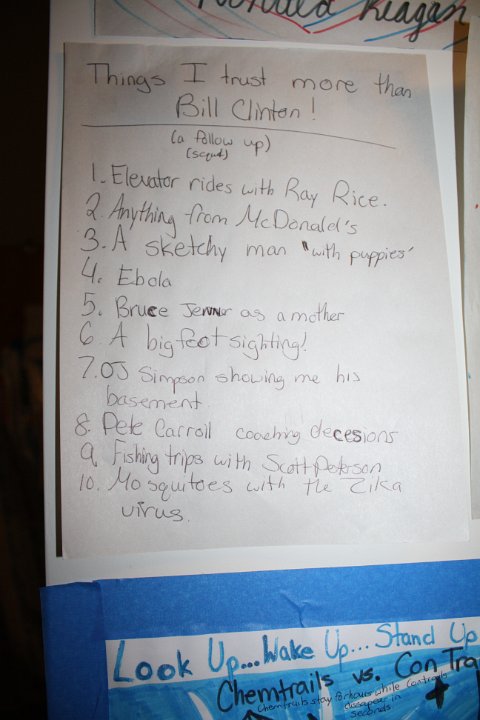 Ronald Reagan
Things I trust more than
Bill Clinton!
(a follow up)
1. Elevator rides with Ray Rice.
2. Anything from McDonald's
3. A sketchy man "with puppies"
4. Ebola
5. Bruce Jenner as a mother
6. A big foot sighting!
7. OJ Simpson showing me his
basement
8. Pete Carroll coaching decesions
9. Fishing trips with Scott Peterson
10. Mosquitoes with the Zika
virus.
Look Up...Wake Up... Stand Up
Chemtrails vs. Con Tra
Chemtrails stay for hours while contrails
disappear in
seconds